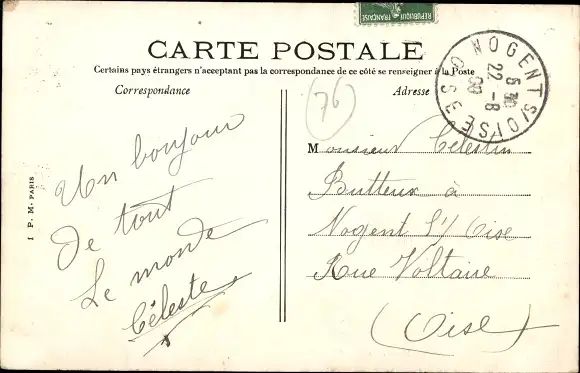 REPUBLIQUE FRANÇAISE
CARTE POSTALE
Certains pays étrangers n'acceptant pas la correspondance de ce côté se renseigner à la Poste
Correspondance
Adresse
NOGENT S/OISE
5 30
22 - 8
OISE
76
Un bonjour
de tout
Le monde
Céleste
Monsieur Célestin
Butteux à
Nogent S/ Oise
Rue Voltaire
(Oise)
I P. M. PARIS